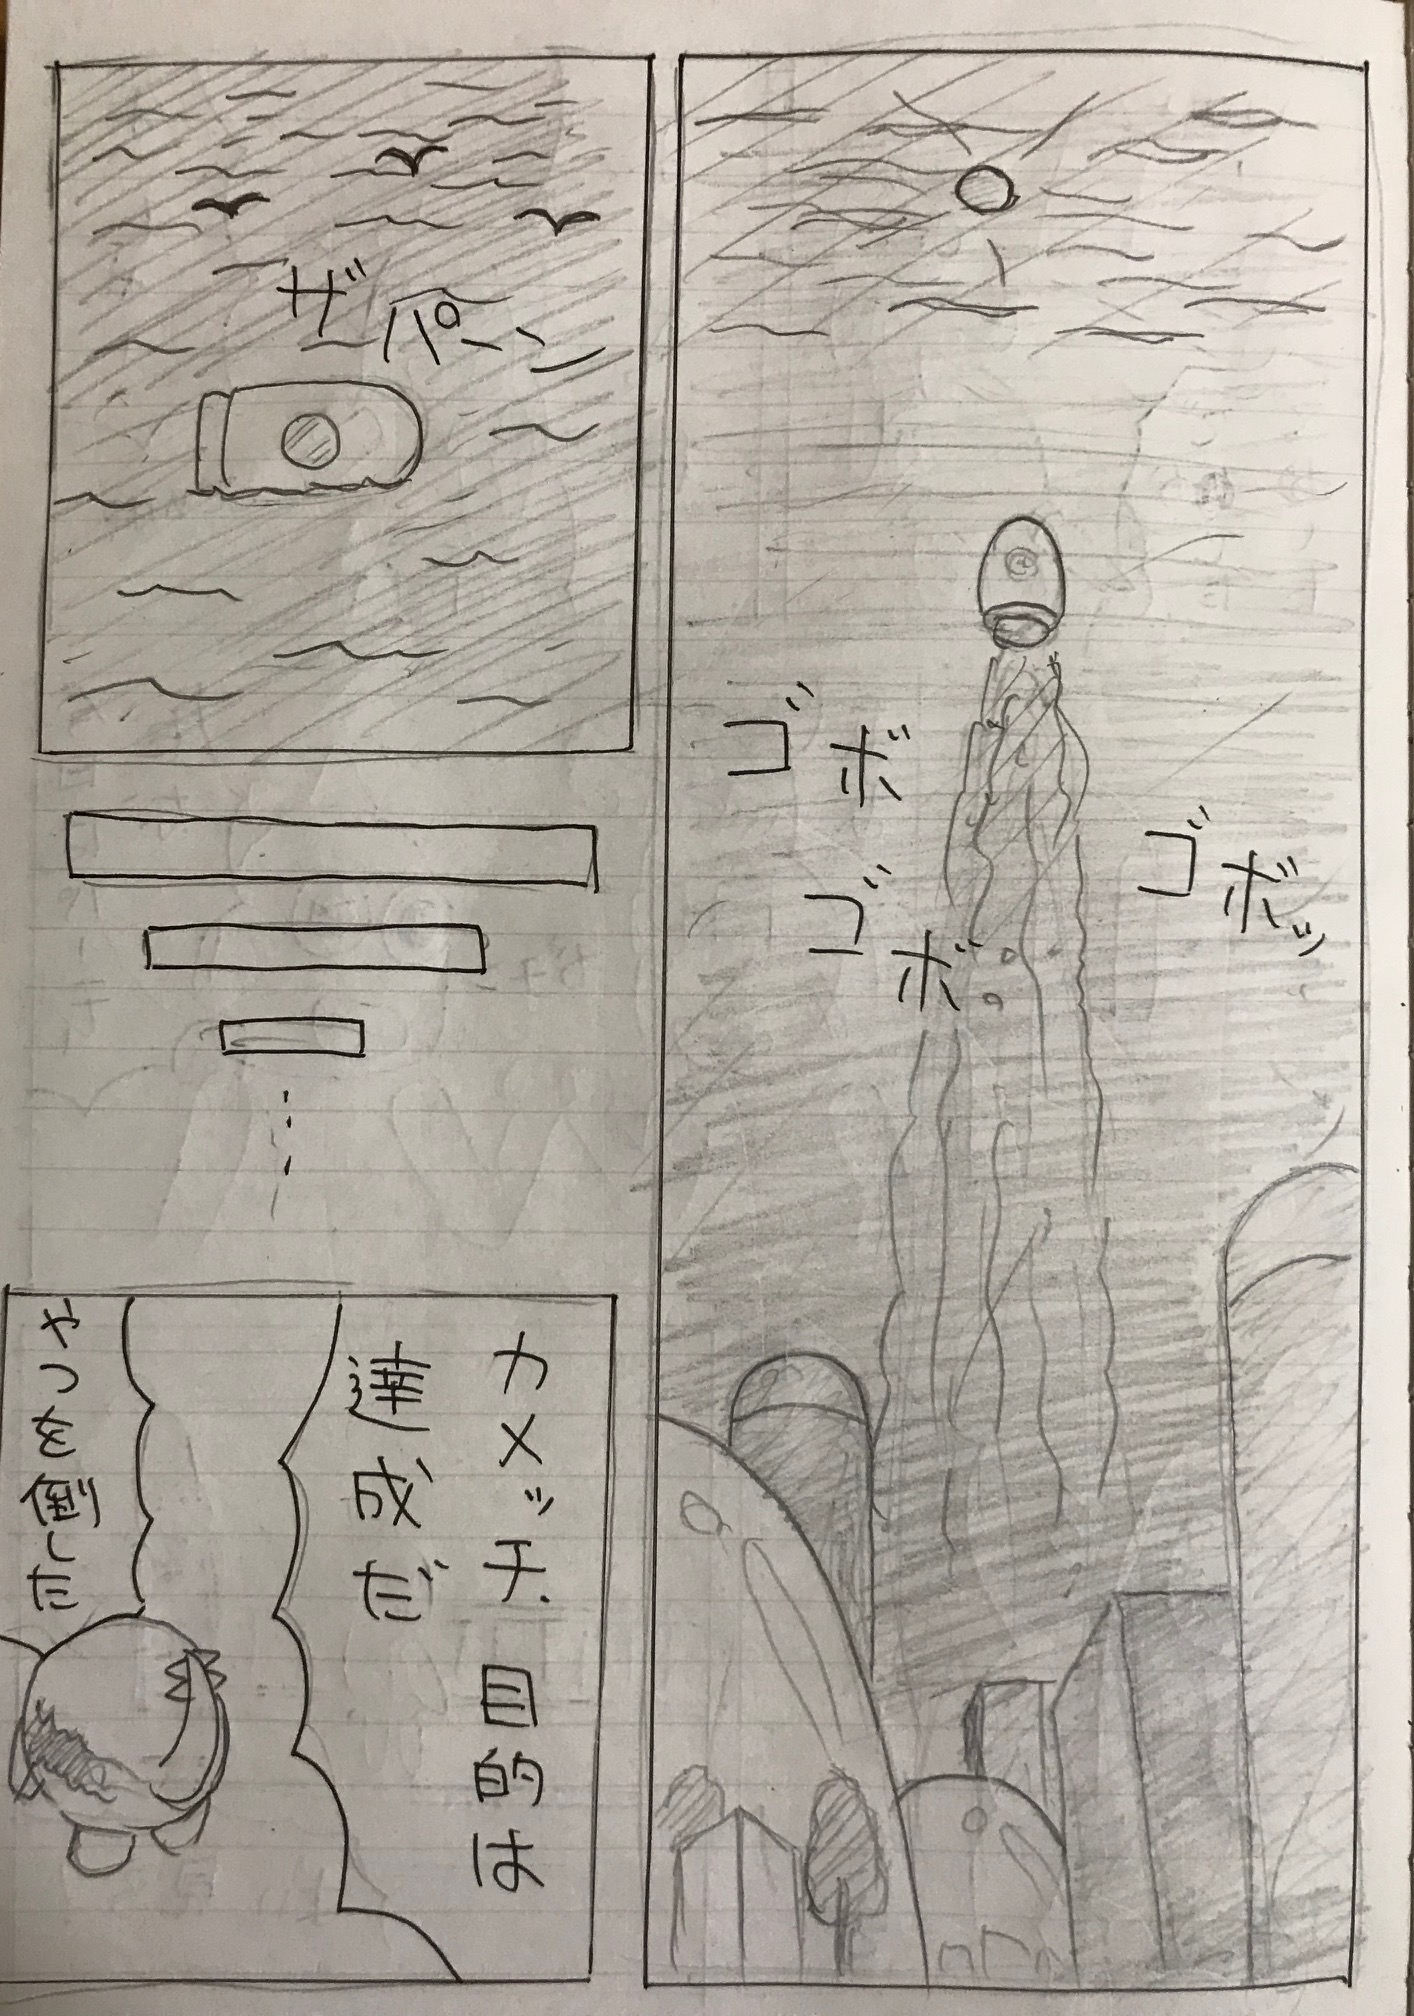 ゴボ
ゴボッ
ゴボ
ザパーン
カメッチ、目的は
達成だ
やつを倒した